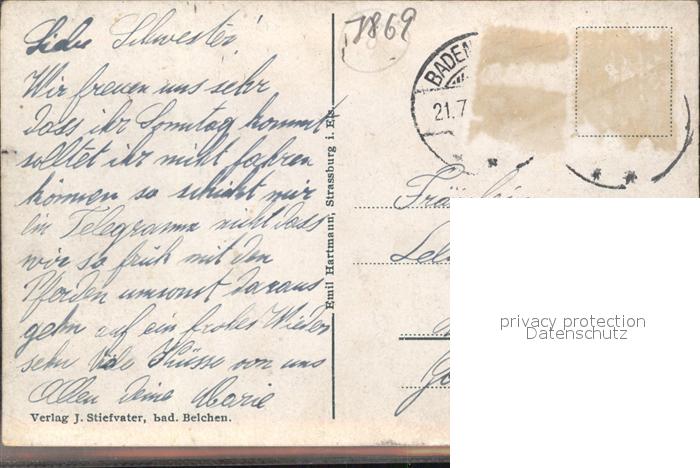 Liebe Schwester!
Wir freuen uns sehr
dass ihr Sonntag kommt
solltet ihr nicht fahren
können so schickt mir
ein Telegramm nicht dass
wir so früh mit den
Pferden umsonst daraus
gehn auf ein frohes Wieder
sehn Viele Küsse von uns
Allen Deine Marie
Verlag J. Stiefvater, bad. Belchen.
Emil Hartmann, Strassburg i. Els.
7869
BADEN
21.7
Fräulein
privacy protection
Datenschutz